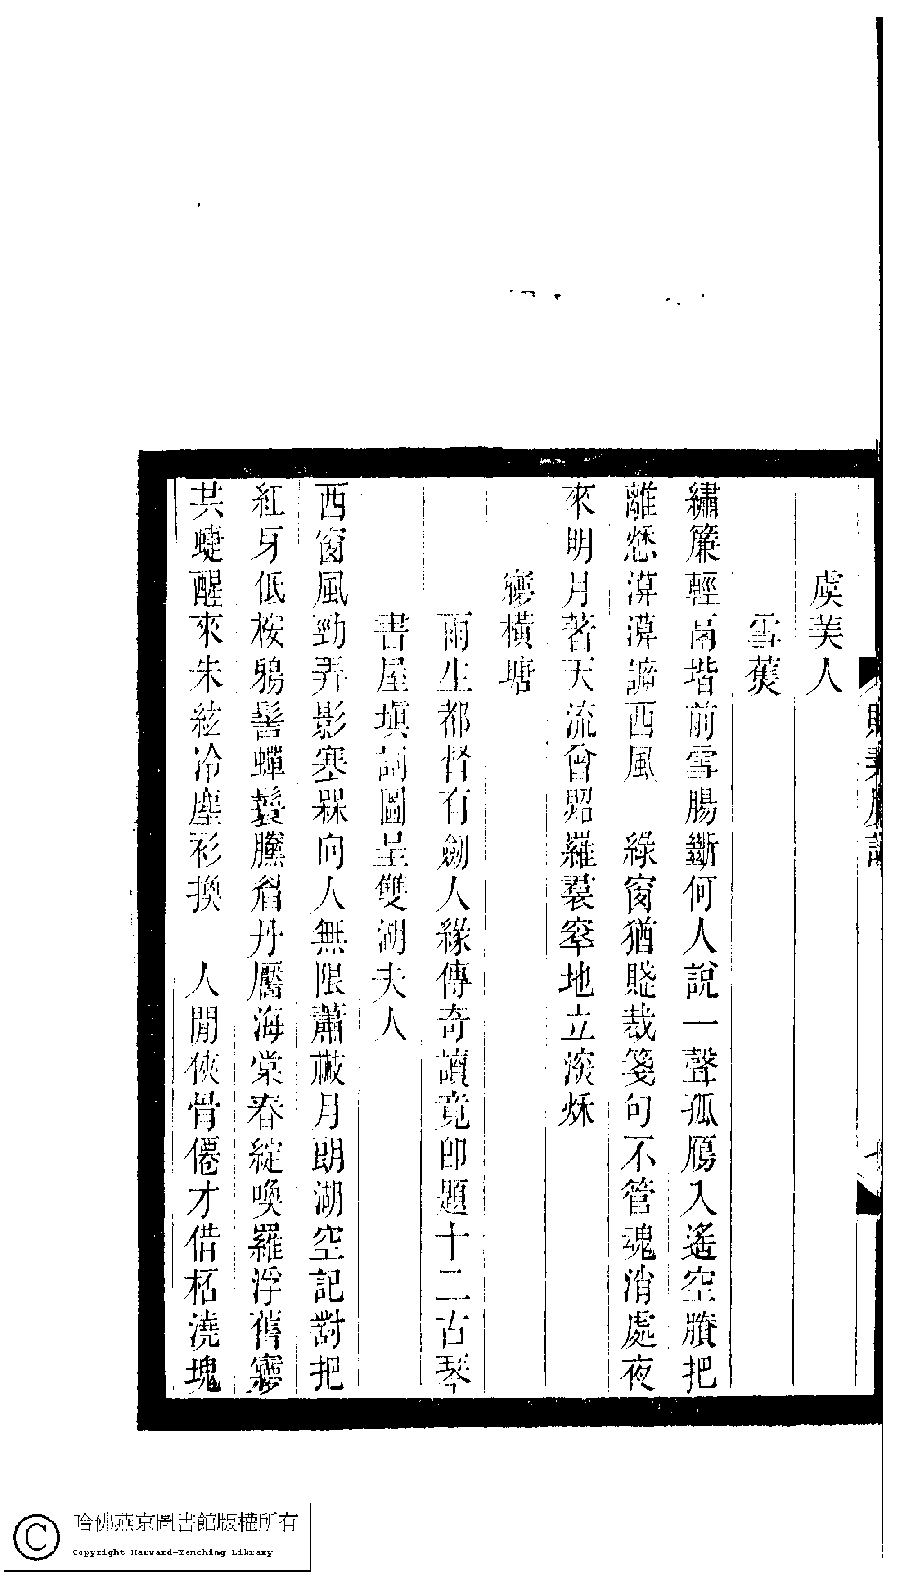 虞美人
雪蕉
繡簾輕冎堦前雪腸斷何人說一聲孤鴈入遙空賸把
離愁渾渾諦西風　綠窗猶賸裁箋句不管魂消處夜
來明月著天流曾照羅裙窣地立深秌
㝱橫塘
雨生都督有劒人緣傳奇讀竟卽題十二古琴
書屋塡詞圖呈雙湖夫人
西窗風勁弄影塞槑向人無限蕭槭月朗湖空記對把
紅牙低按鴉髻蟬鬢騰眉丹靨海棠春綻喚羅浮舊㝱
共蜨醒來朱絃冷塵衫換　人閒俠骨僊才借桮澆塊
哈佛燕京圖書館版權所有
Copyright Harvard-Yenching Library